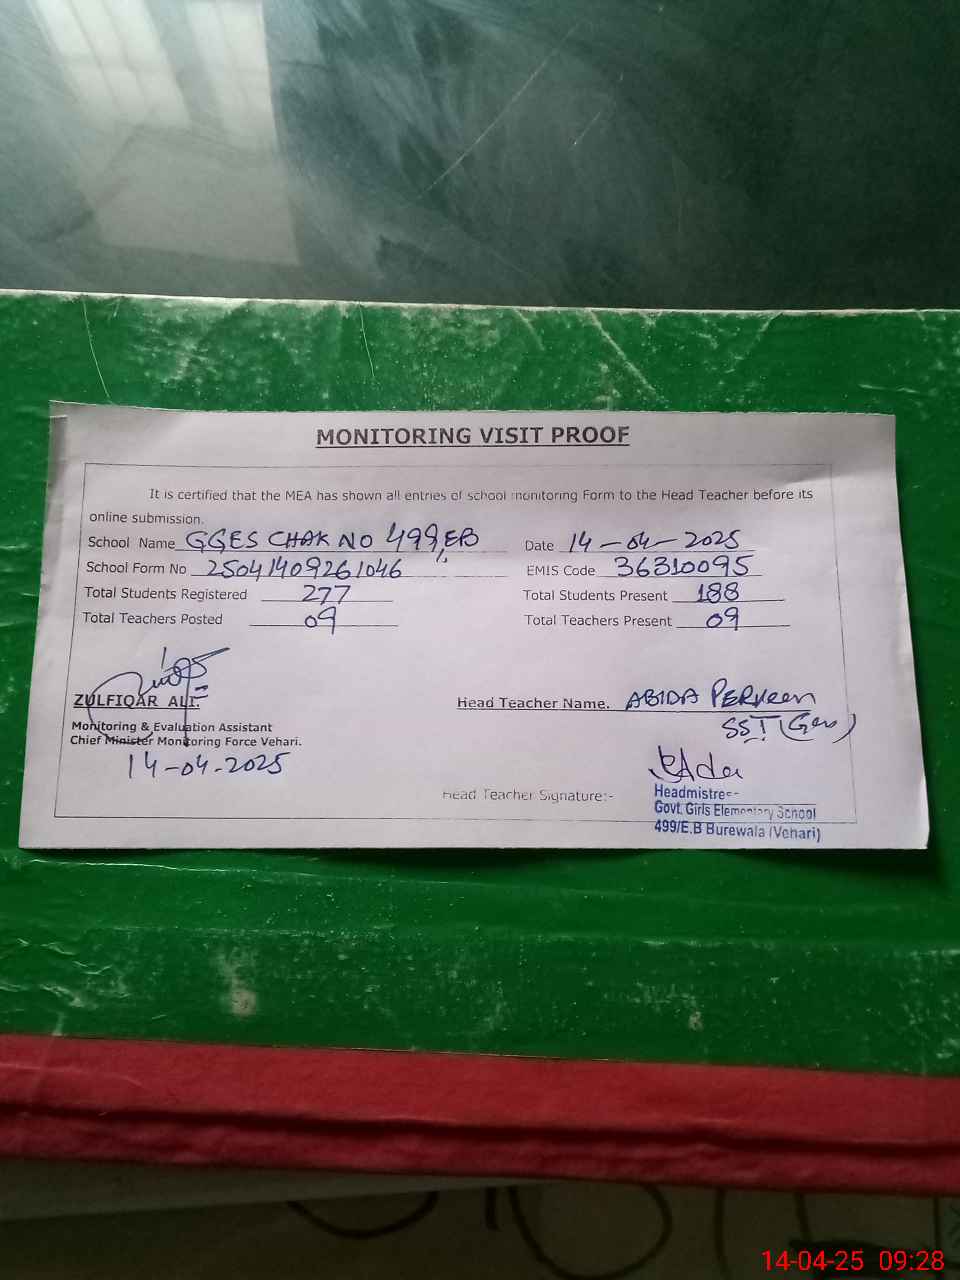 MONITORING VISIT PROOF
It is certified that the MEA has shown all entries of school monitoring Form to the Head Teacher before its
online submission.
School Name GGES CHAK NO 499/EB Date 14-04-2025
School Form No 25041409261046 EMIS Code 36310095
Total Students Registered 277 Total Students Present 188
Total Teachers Posted 09 Total Teachers Present 09
ZULFIQAR ALI.
Monitoring & Evaluation Assistant
Chief Minister Monitoring Force Vehari.
14-04-2025
Head Teacher Name. ABIDA PERVEEN
SST (Gen)
Head Teacher Signature:-
Headmistress
Govt. Girls Elementary School
499/E.B Burewala (Vehari)
14-04-25 09:28